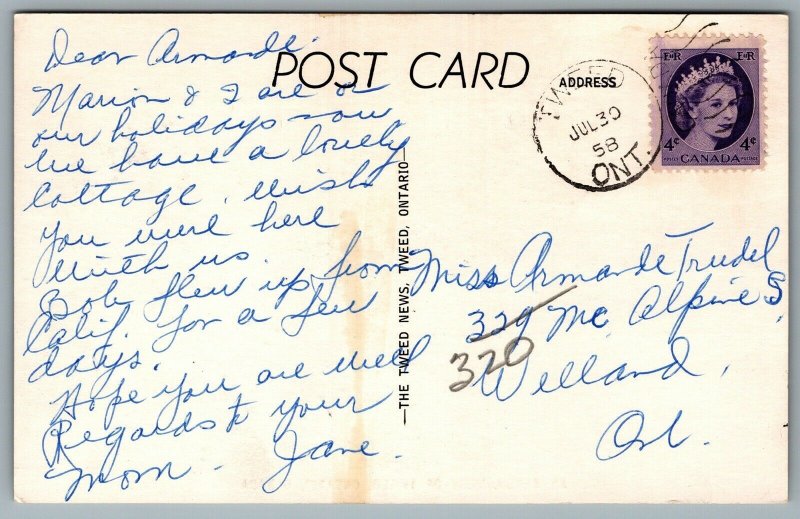 POST CARD
ADDRESS
TWEED
JUL 30
58
ONT.
E II R
E II R
4¢
4¢
CANADA
POSTES POSTAGE
Dear Armande.
Marion & I are on
our holidays now
We have a lovely
Cottage. Wish
you were here
With us.
Bob flew up from
Calif. for a few
days.
Hope you are well
Regards to your
Mom. Jane.
—THE TWEED NEWS, TWEED, ONTARIO—
Miss Armande Trudel
329 Mc Alpine S
320
Welland,
Ont.